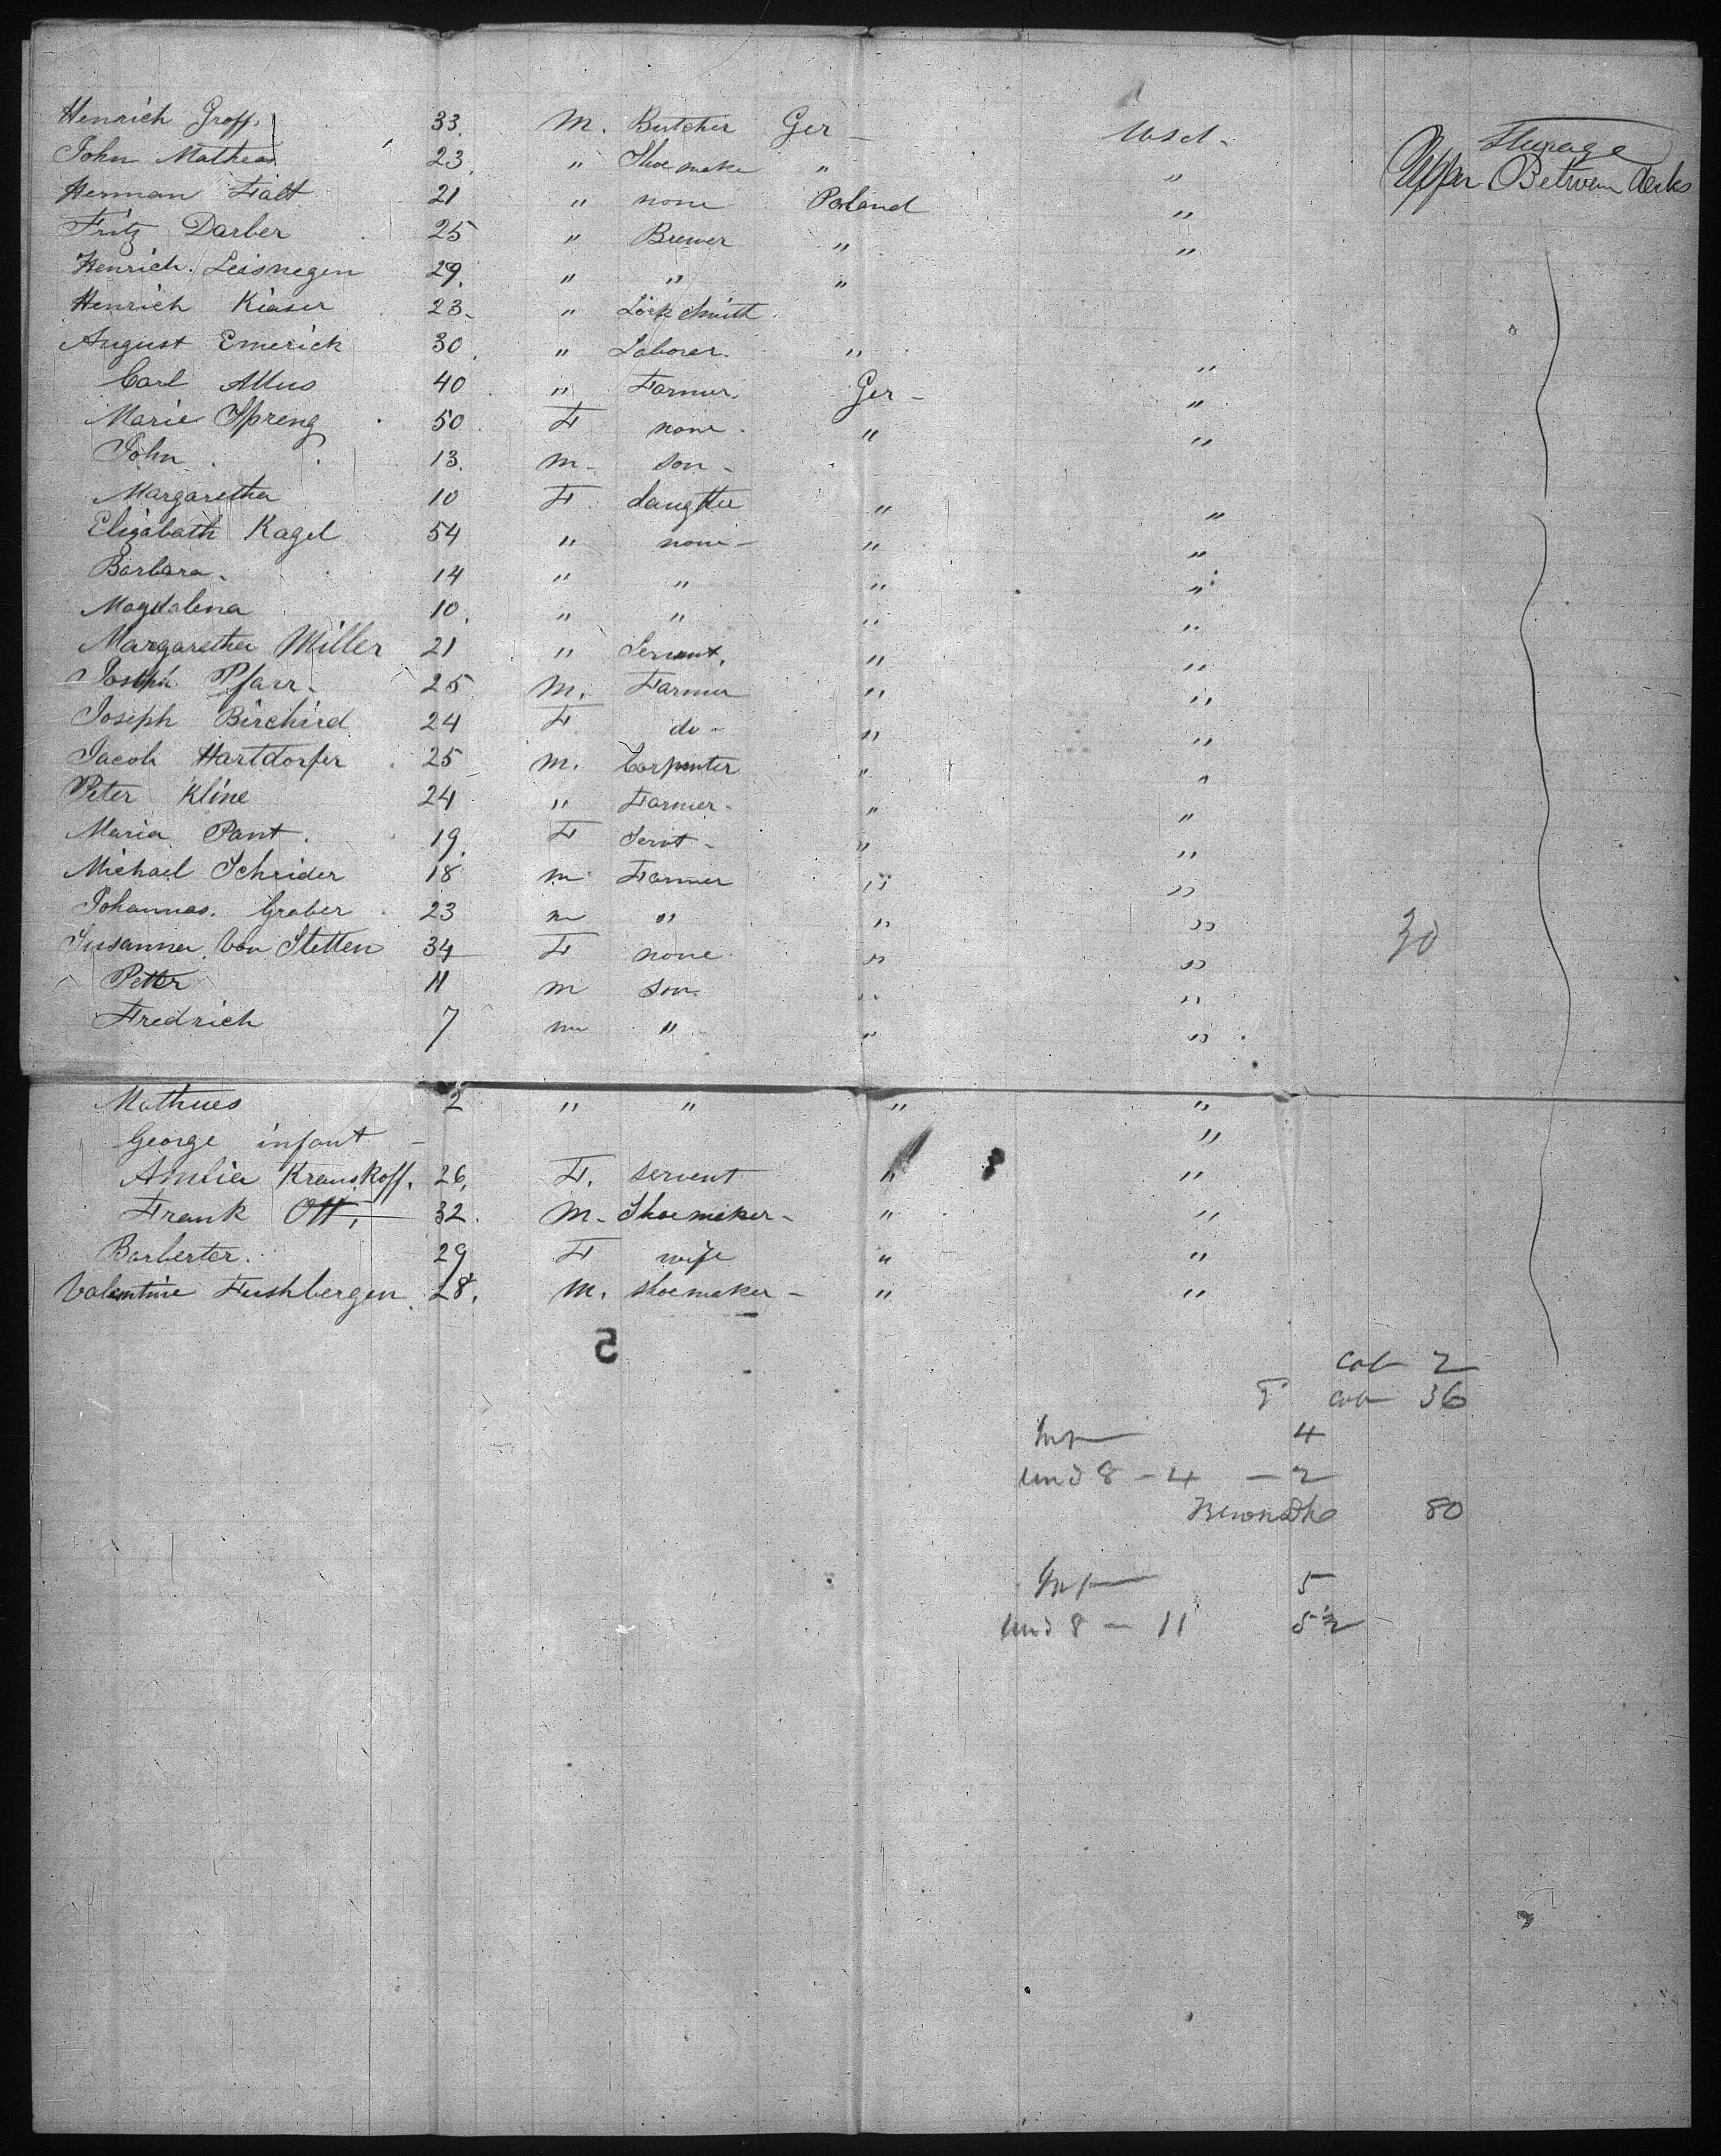 Henrich Groff. 33. M. Butcher Ger - Usd - Sturage
John Matheas 23. " Shoe make " " Upper Between decks
Herman Falt 21 " none Poland "
Fritz Darber 25 " Brewer " "
Henrich. Leisnegen 29. " " "
Henrich Kiaser 23- " Lock Smith
August Emerick 30. " Laborer. " "
Carl Allus 40 " Farmer. Ger - "
Marie Spreng 50. F none - " "
John 13. M- son -
Margaretha 10 F daughter " "
Elizabath Kagel 54 " none - " "
Barbara. 14 " " " "
Magdalena 10. " " " "
Margaretha Miller 21 " Servant, " "
Joseph Pfarr. 25 M. Farmer " "
Joseph Birchird 24 F do - " "
Jacob Hartdorfer 25 M. Carpenter " "
Peter Kline 24 " Farmer - " "
Maria Pant. 19. F Servt - " "
Michael Schrider 18 m Farmer " "
Johannas. Graber 23 m " " "
Susanna. Von Stetten 34 F none " " 30
Peter 11 m son. " "
Fredrich 7 m " " "
Mathues 2 " " " "
George infant - "
Amelia Krauskoff. 26. F. servent " "
Frank Ott, 32. M- Shoemaker - " "
Barberter. 29 F wife " "
Valentine Fushbergen 28. M. shoemaker - " "
5
Cab 2
cab 36
Inf 4
und 8 - 4 - 2
80
Inf 5
und 8 - 11 5½